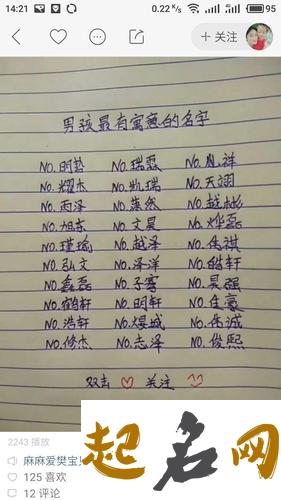 14:21 0.22 K/s 4G 95
+ 关注
男孩最有寓意的名字
NO.明哲 NO.瑞霖 NO.胤祥
NO.耀杰 NO.凯瑞 NO.天翊
NO.雨泽 NO.燊然 NO.越彬
NO.旭东 NO.文昊 NO.烨磊
NO.瑾瑜 NO.越泽 NO.伟祺
NO.弘文 NO.泽洋 NO.皓轩
NO.鑫磊 NO.子骞 NO.昊强
NO.鹤轩 NO.明轩 NO.佳豪
NO.浩轩 NO.煜城 NO.伟诚
NO.修杰 NO.志泽 NO.俊熙
双击 关注
2243 播放
麻麻爱樊宝!
125 喜欢
12 评论
起名网